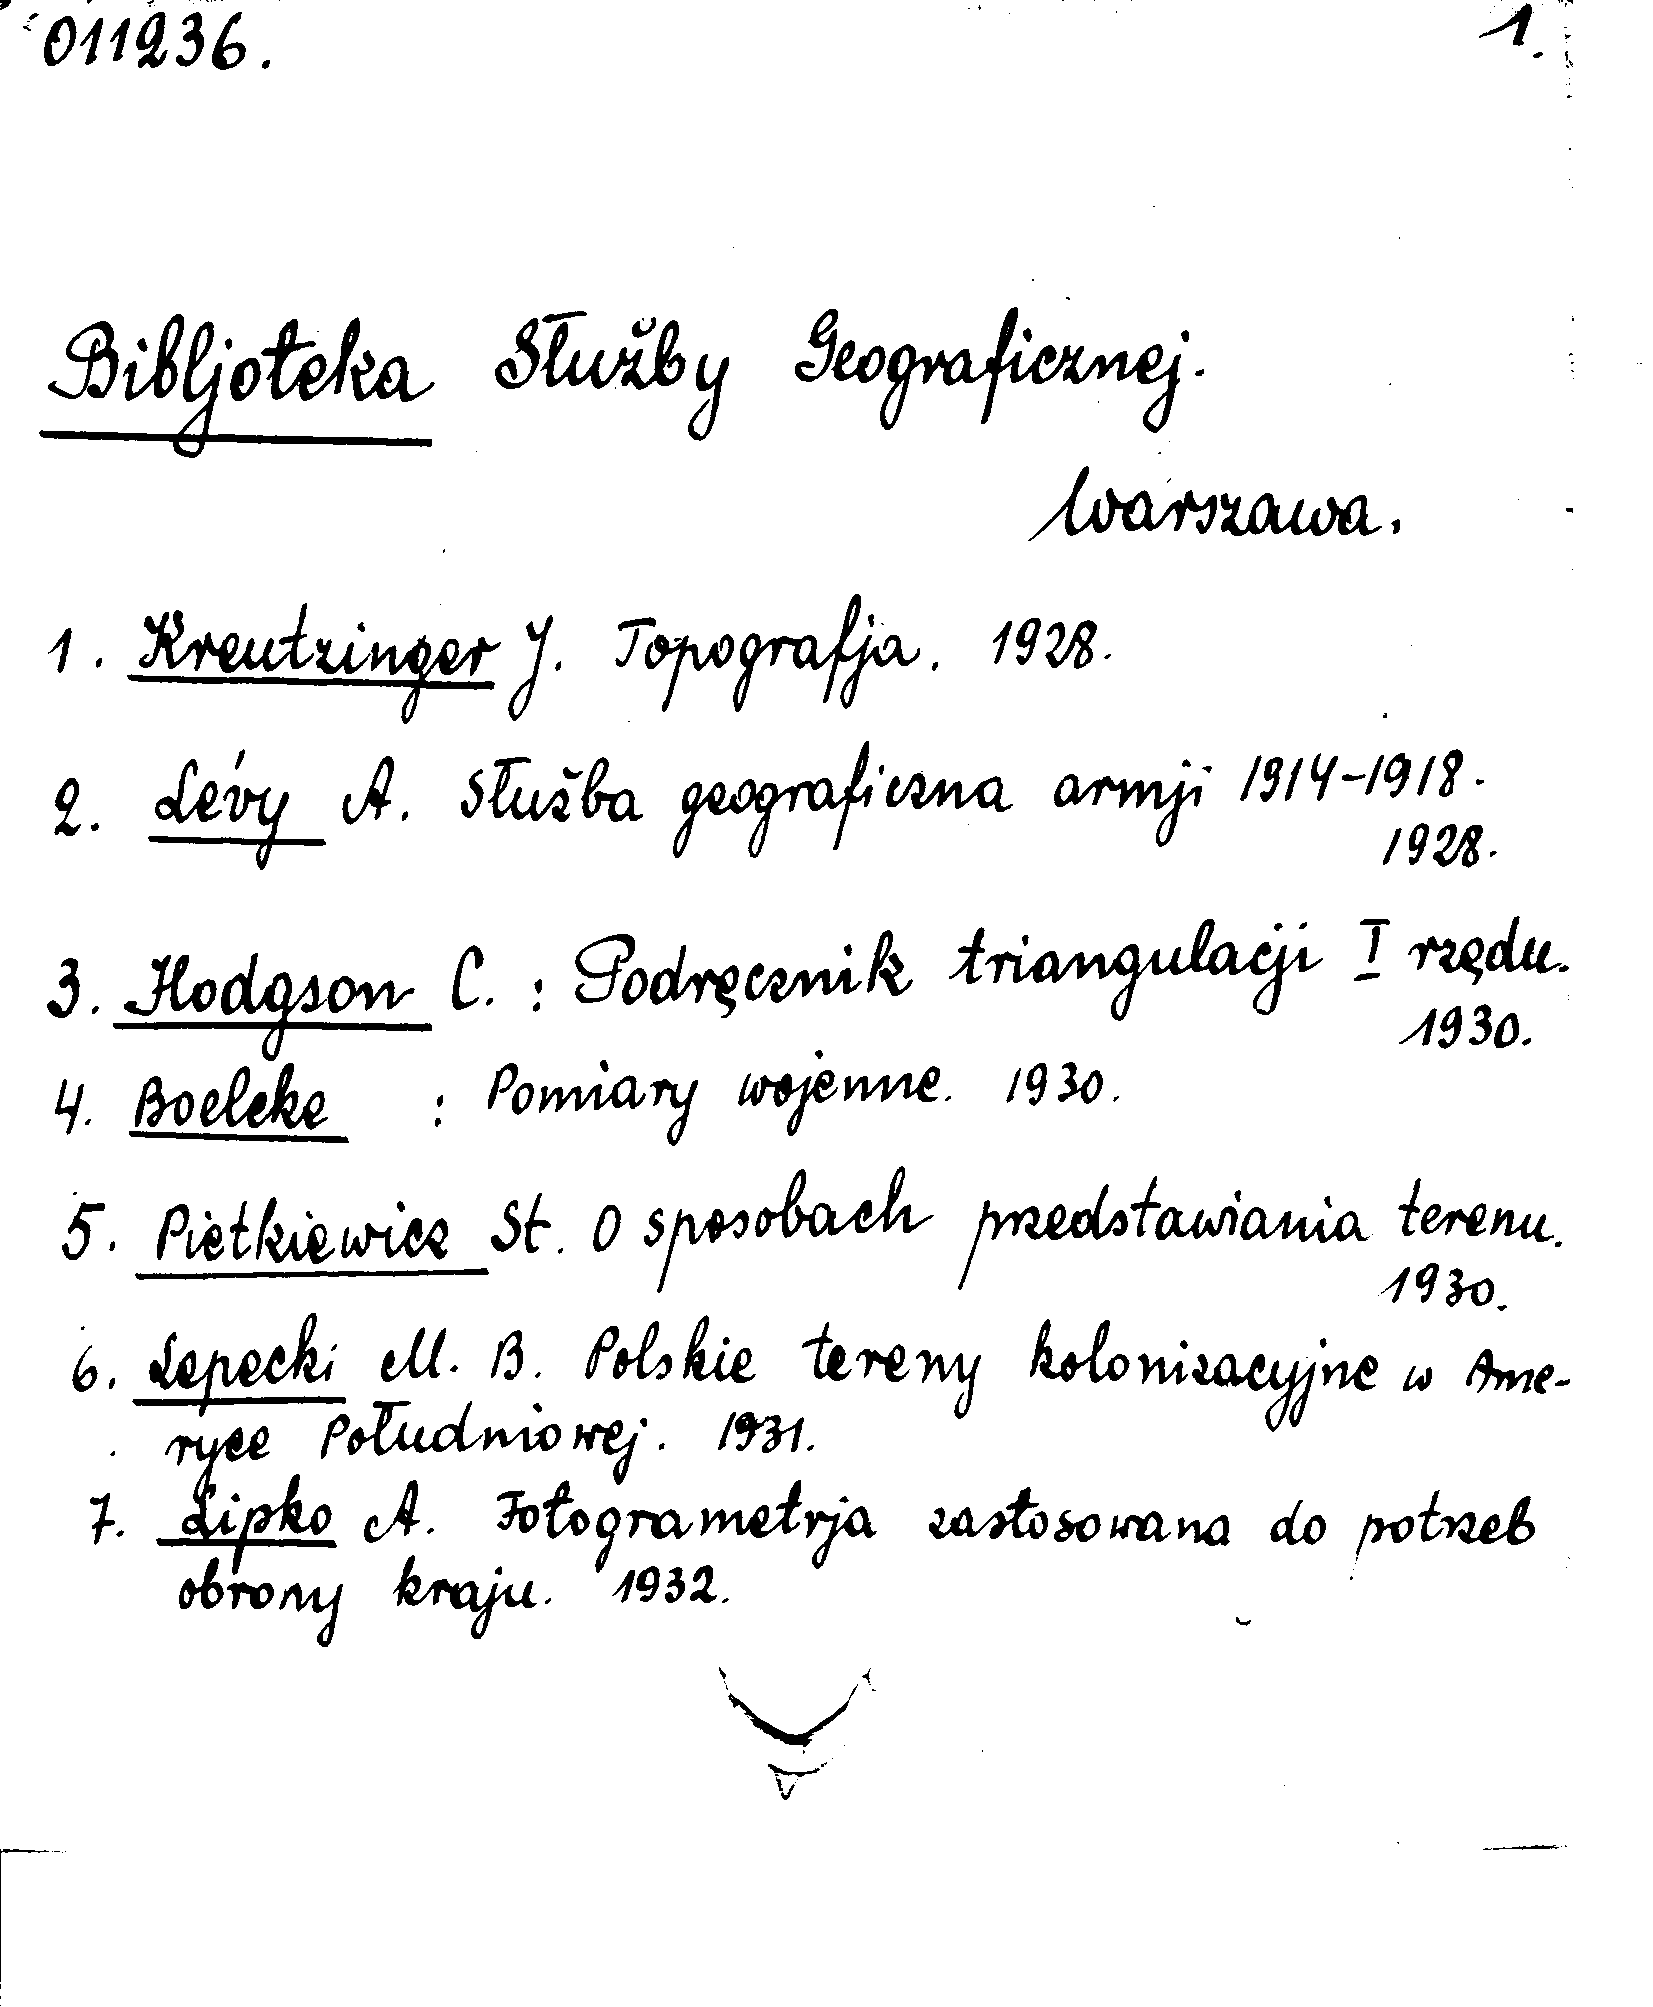 011236.
1.
Bibljoteka Służby Geograficznej.
Warszawa.
1. Kreutzinger J. Topografja. 1928.
2. Lévy A. Służba geograficzna armji 1914-1918.
1928.
3. Hodgson C. : Podręcznik triangulacji I rzędu.
1930.
4. Boelcke : Pomiary wojenne. 1930.
5. Pietkiewicz St. O sposobach przedstawiania terenu.
1930.
6. Lepecki M. B. Polskie tereny kolonizacyjne w Ame-
ryce Południowej. 1931.
7. Lipko A. Fotogrametrja zastosowana do potrzeb
obrony kraju. 1932.